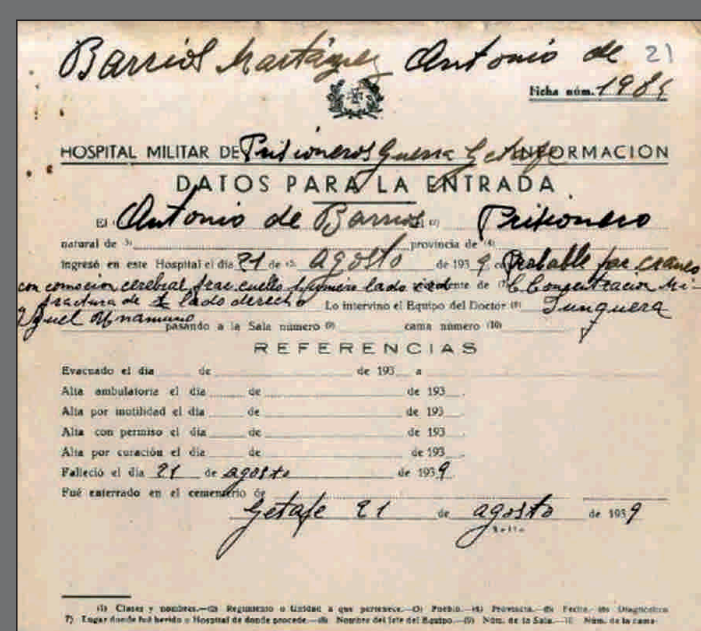 Barrios Martínez Antonio de 21
Ficha núm. 1985
HOSPITAL MILITAR DE Prisioneros Guerra Getafe INFORMACION
DATOS PARA LA ENTRADA
El (1) Antonio de Barrios (2) Prisionero
natural de (3) provincia de (4)
ingresó en este Hospital el día 21 de (5) Agosto de 193 9 con Probable frac. craneo
con comoción cerebral frac. cuello húmero lado procedente de (7) C. Concentracion Mi-
fractura de lado derecho Lo intervino el Equipo del Doctor (8) Junquera
guel Unamuno pasando a la Sala número (9) cama número (10)
REFERENCIAS
Evacuado el día de de 193 a
Alta ambulatoria el día de de 193 .
Alta por inutilidad el día de de 193 .
Alta con permiso el día de de 193 .
Alta por curación el día de de 193 .
Falleció el día 21 de agosto de 193 9
Fué enterrado en el cementerio de
Getafe 21 de agosto de 193 9
Sello
(1) Clases y nombres.—(2) Regimiento o Unidad a que pertenece.—(3) Pueblo.—(4) Provincia.—(5) Fecha.—(6) Diagnóstico
7) Lugar donde fué herido u Hospital de donde procede.—(8) Nombre del Jefe del Equipo.—(9) Núm. de la Sala.—(10) Núm. de la cama